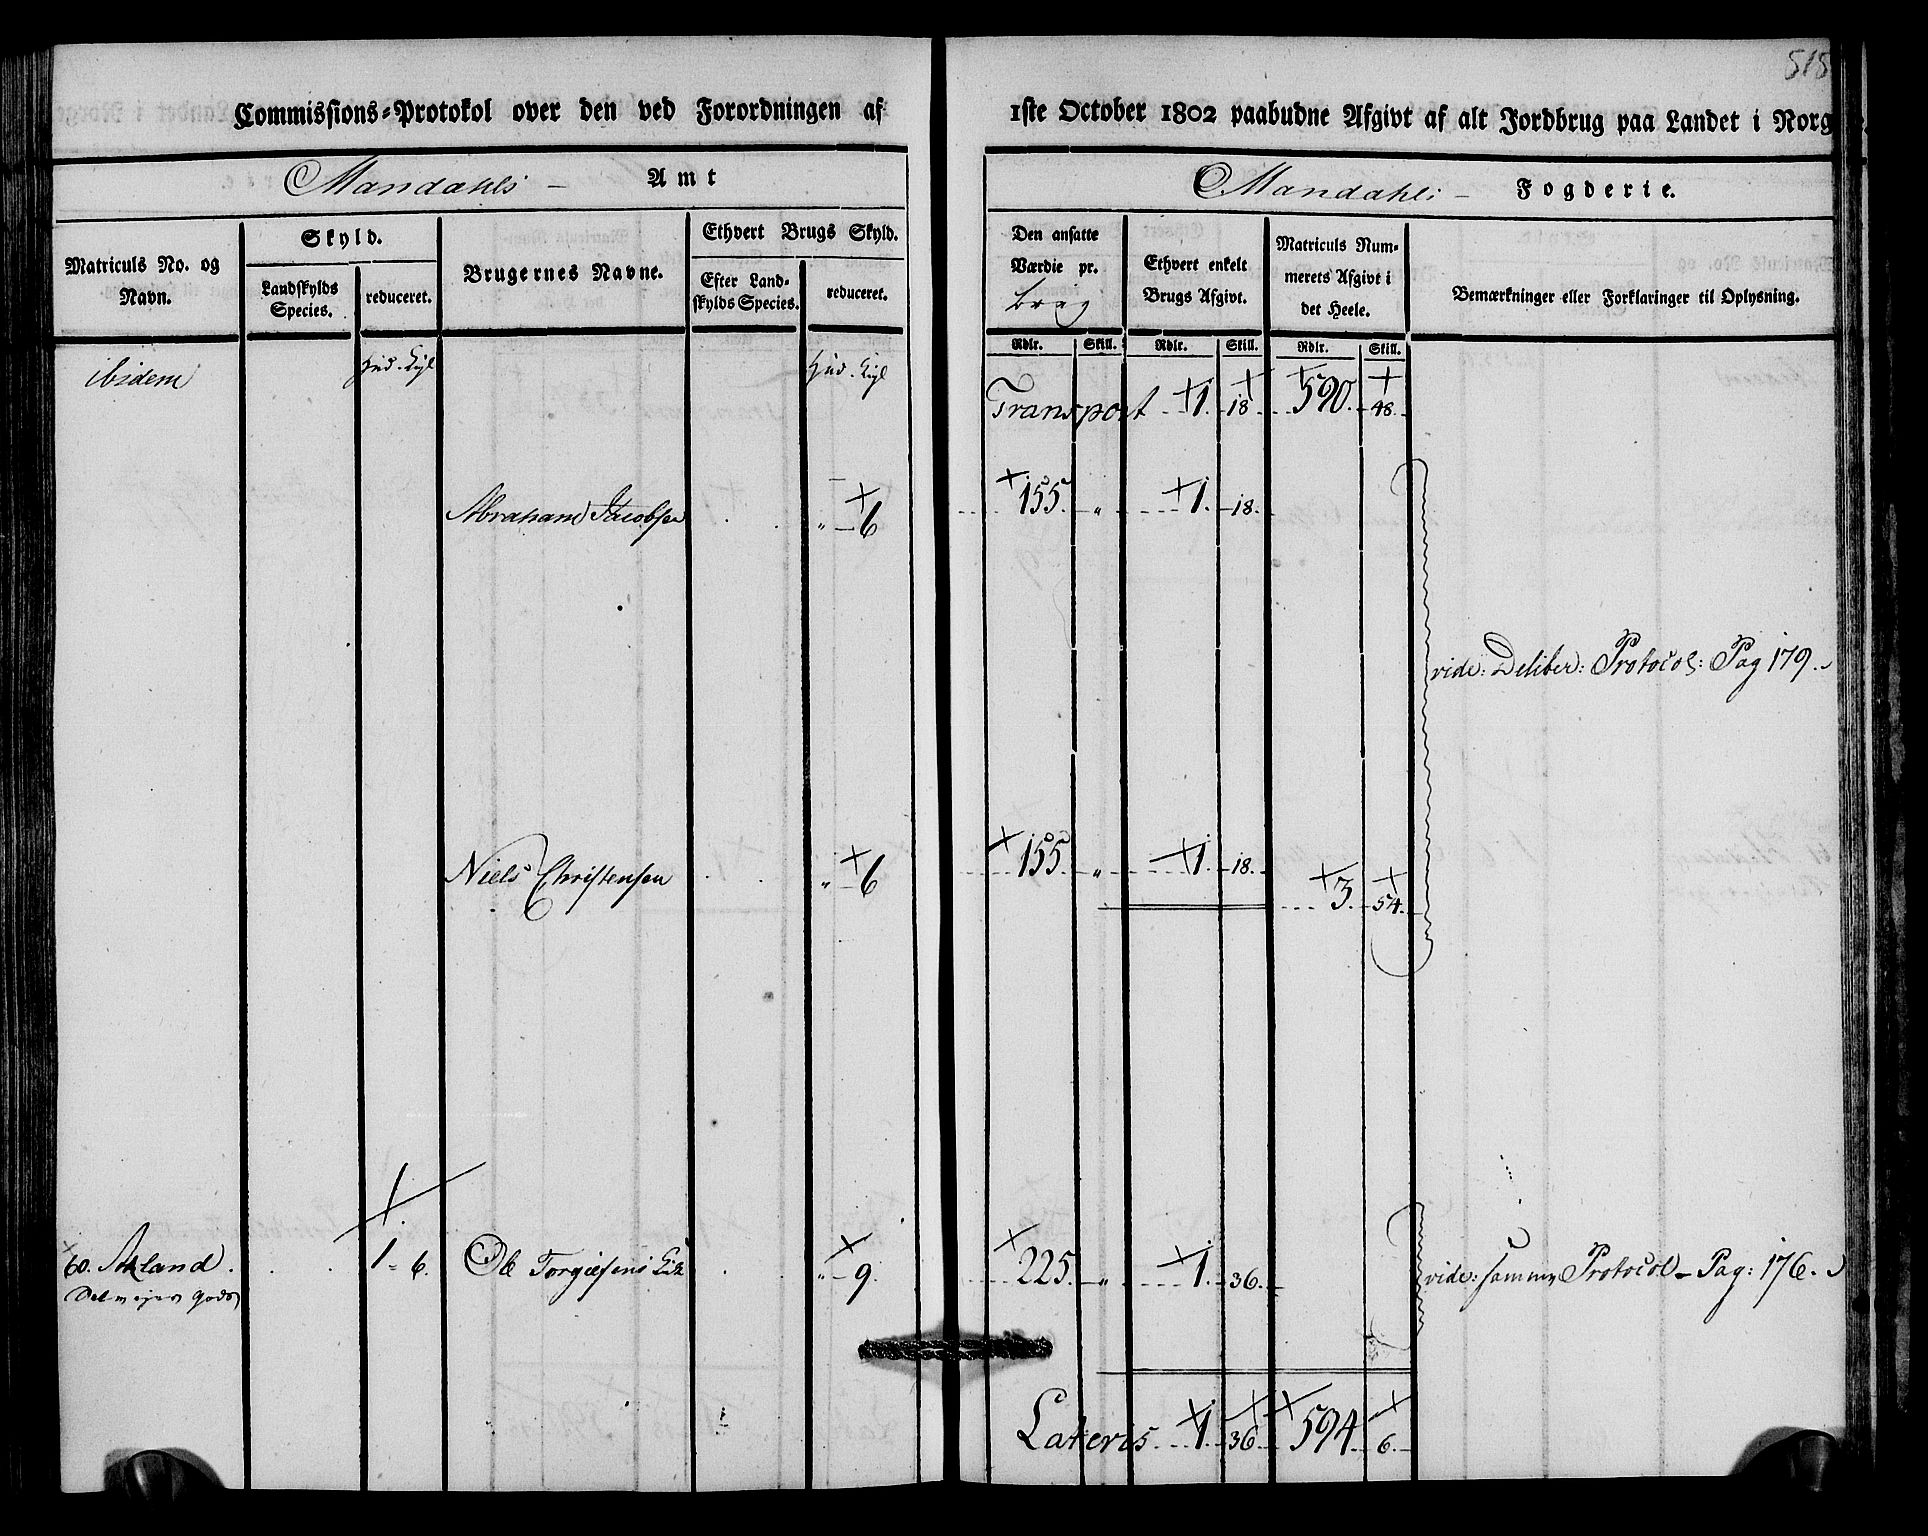 518
Commissions=Protokol over den ved Forordningen af 1ste October 1802 paabudne Afgivt af alt Jordbrug paa Landet i Norg
Mandahls – Amt
Mandahls – Fogderie.
Matriculs No. og Navn.
Skyld.
Landskylds Species.
reduceret.
Brugernes Navne.
Ethvert Brugs Skyld.
Efter Landskylds Species.
reduceret.
Den ansatte Værdie pr. brug
Ethvert enkelt Brugs Afgivt.
Matriculs Nummerets Afgivt i det Heele.
Bemærkninger eller Forklaringer til Oplysning.
Rdlr. Skill. Rdlr. Skill. Rdlr. Skill.
ibidem Hud. Kigl Hud. Kigl
Transport 1. 18 590. 48.
Abraham Jacobsen „ 6 155. „ 1. 18.
vide: Deliber: Protocol: Pag 179.
Niels Christensen „ 6 155. „ 1. 18. 3. 54.
60. Aaland. 1. 6. Ole Torgiefsens „ 9. 225. „ 1. 36. vide: samme Protocol – Pag: 176.
gods
Lateris 1. 36 594 6.